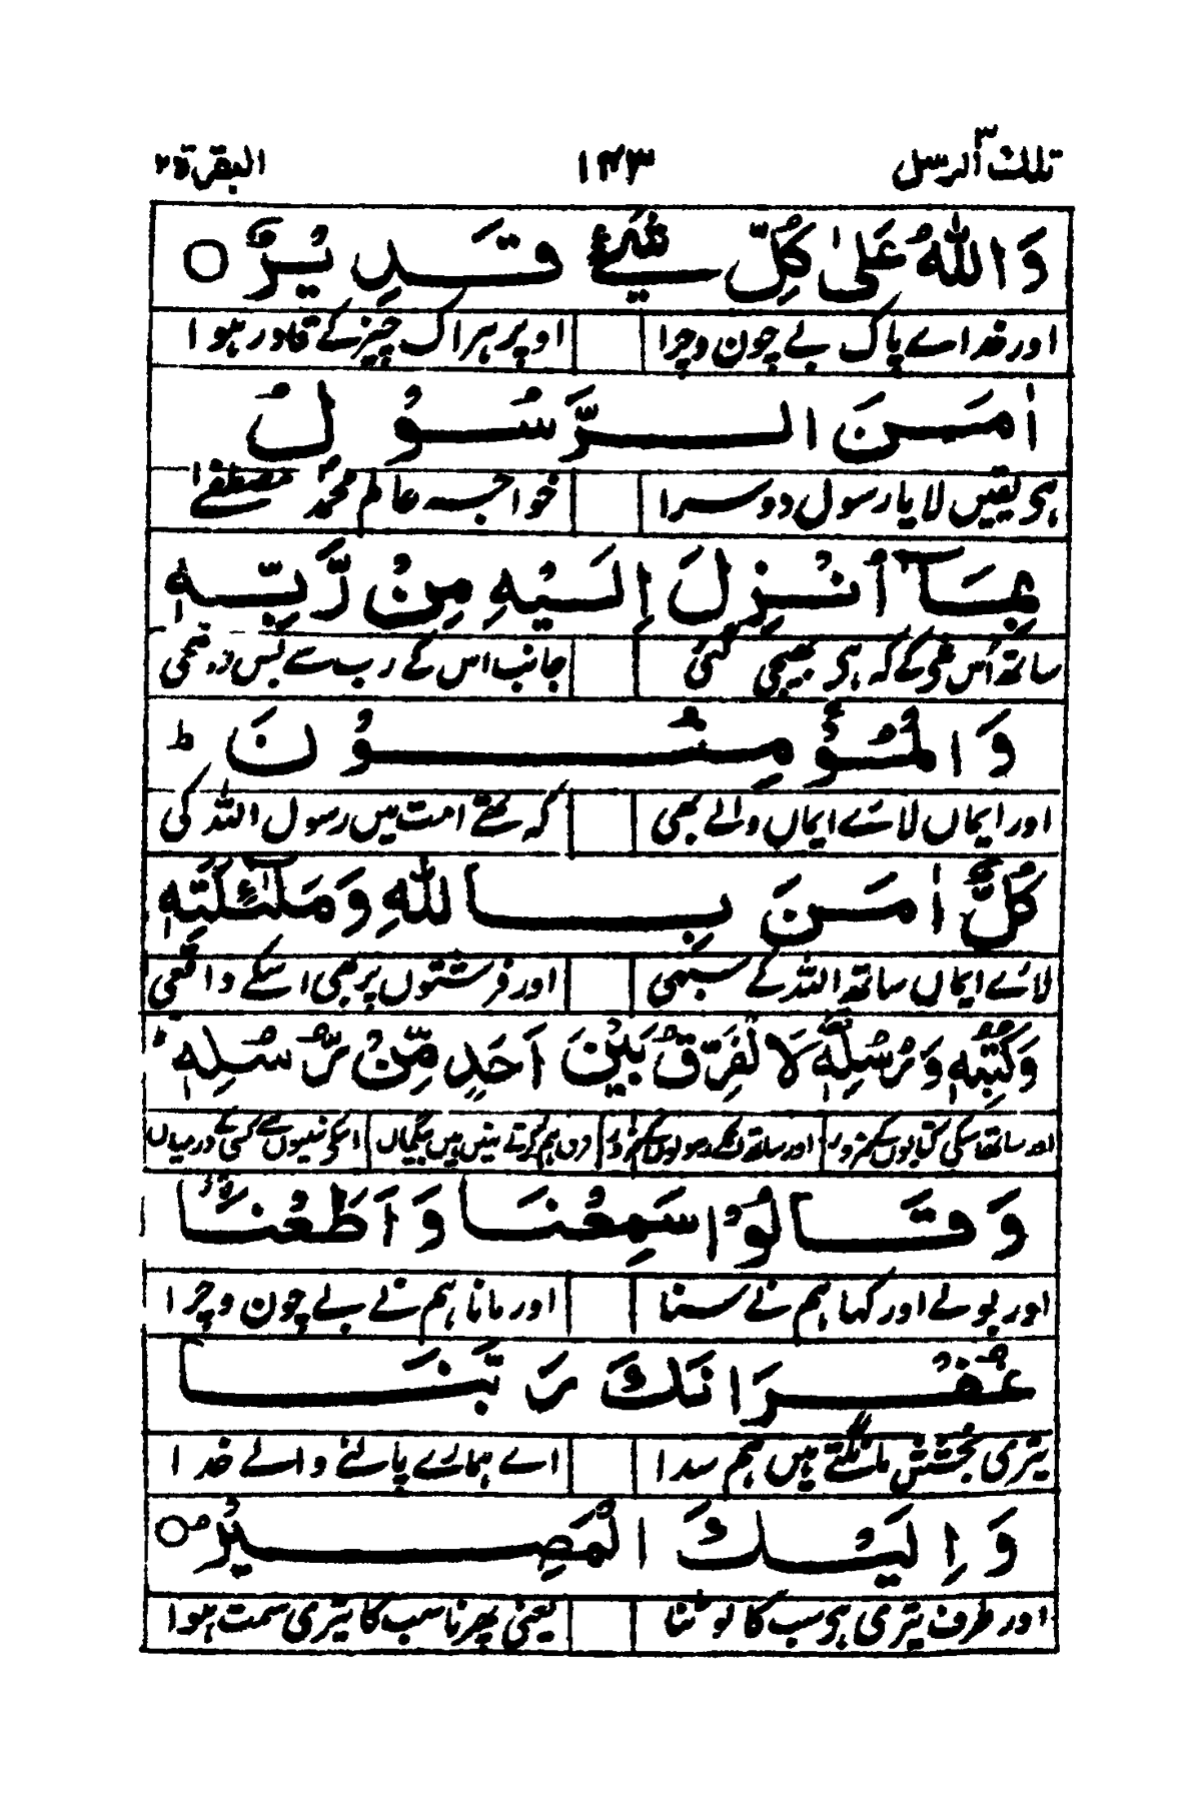 تلك الرسل ٣ ١٤٣ البقرة ٢
وَاللّٰهُ عَلٰى كُلِّ شَىْءٍ قَدِيْرٌ ○
اور خدائے پاک بے چون و چرا اوپر ہر اک چیز کے قادر ہوا
اٰمَنَ الرَّسُوْلُ
ہی یقیں لایا رسول دوسرا خواجہ عالم محمد مصطفےٰ
بِمَآ اُنْزِلَ اِلَيْهِ مِنْ رَّبِّهٖ
ساتھ اُس کے کہ ہی بھیجی گئی جانب اس کے رب سے بس
وَالْمُؤْمِنُوْنَ ط
اور ایماں لائے ایماں والے بھی کہ تھے امت میں رسول اللہ کی
كُلٌّ اٰمَنَ بِاللّٰهِ وَمَلٰٓئِكَتِهٖ
لائے ایماں ساتھ اللہ کے سبھی اور فرشتوں پر بھی اسکے واقعی
وَكُتُبِهٖ وَرُسُلِهٖ لَا نُفَرِّقُ بَيْنَ اَحَدٍ مِّنْ رُّسُلِهٖ
اور ساتھ اسکی کتابوں کے ضرور اور ساتھ اسکے رسولوں کے ضرور فرق ہم کرتے نہیں ہیں بیگماں اسکے نبیوں سے کسی کے درمیاں
وَقَالُوْا سَمِعْنَا وَاَطَعْنَا
اور بولے اور کہا ہم نے سنا اور مانا ہم نے بے چون و چرا
غُفْرَانَكَ رَبَّنَا
تیری بخشش مانگتے ہیں ہم سدا اے ہمارے پالنے والے خدا
وَاِلَيْكَ الْمَصِيْرُ ○
اور طرف تیری ہی سب کا لوٹنا یعنی پھرنا سب کا تیری سمت ہوا